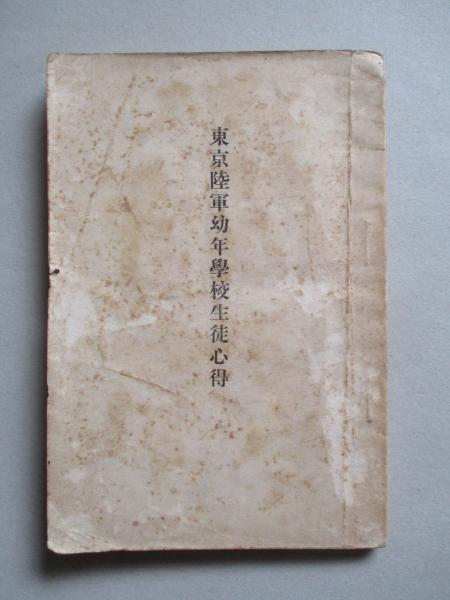 東京陸軍幼年學校生徒心得